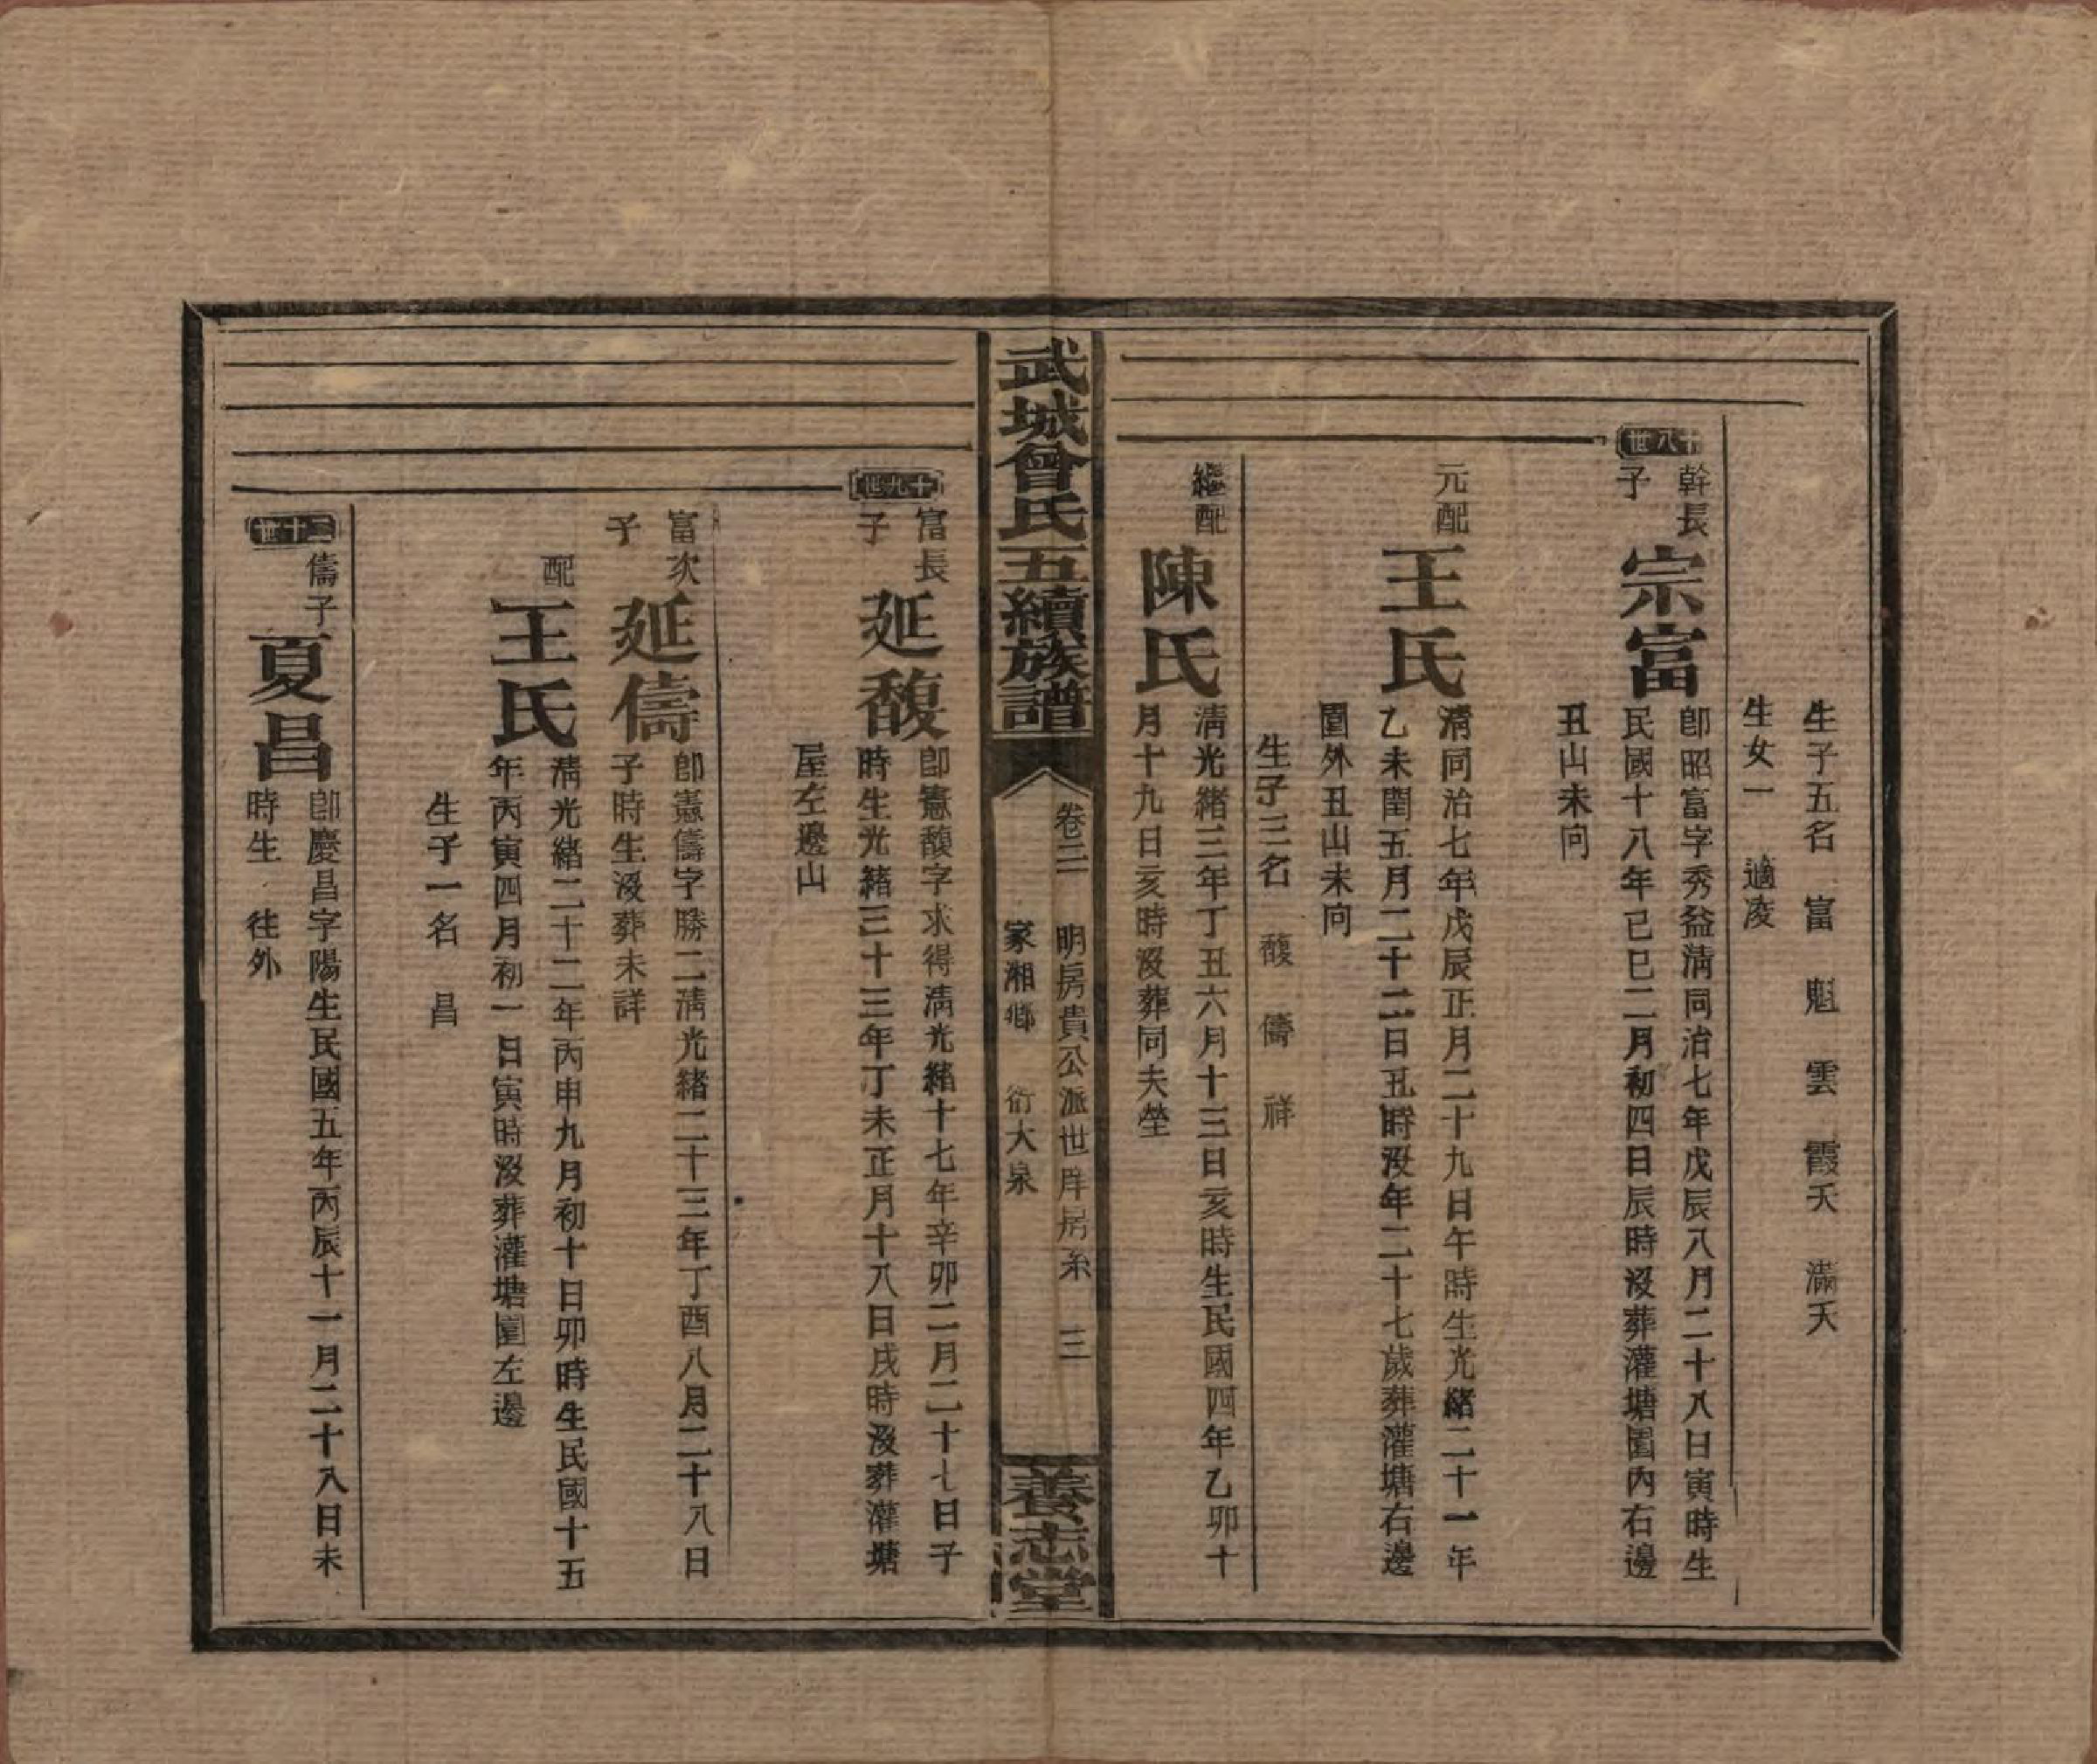 生子五名　富　魁　雲　霞夭　滿夭
生女一　適凌
十八世
幹長子
宗富
卽昭富字秀益淸同治七年戊辰八月二十八日寅時生
民國十八年己巳二月初四日辰時沒葬灌塘園內右邊
丑山未向
元配
王氏
淸同治七年戊辰正月二十九日午時生光緒二十一年
乙未閏五月二十二日丑時沒年二十七歲葬灌塘右邊
園外丑山未向
生子三名　馥　儔　祥
繼配
陳氏
淸光緒三年丁丑六月十三日亥時生民國四年乙卯十
月十九日亥時沒葬同夫塋
武城曾氏五續族譜
卷二　明房貴公派世庠房系　三
家湘鄉　衍大泉
養志堂
十九世
富長子
延馥
卽憲馥字求得淸光緒十七年辛卯二月二十七日子
時生光緒三十三年丁未正月十八日戌時沒葬灌塘
屋左邊山
富次子
延儔
卽憲儔字勝二淸光緒二十三年丁酉八月二十八日
子時生沒葬未詳
配
王氏
淸光緒二十二年丙申九月初十日卯時生民國十五
年丙寅四月初一日寅時沒葬灌塘園左邊
生子一名　昌
二十世
儔子
夏昌
卽慶昌字陽生民國五年丙辰十一月二十八日未
時生　往外